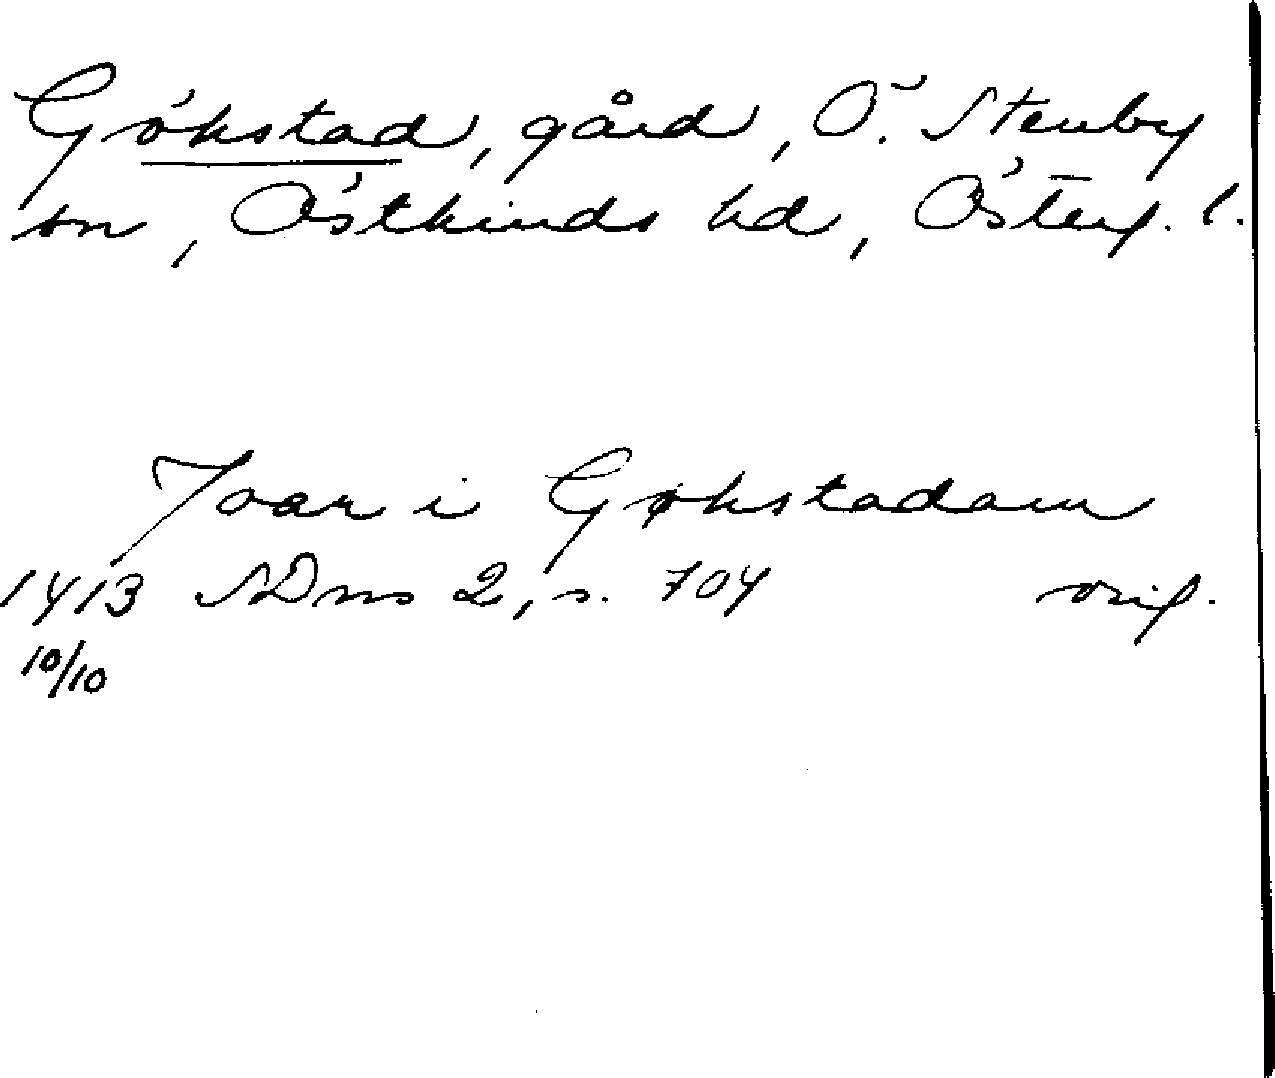 Gökstad, gård, Ö. Stenby
sn, Östkinds hd, Österg. l.
Joar i Gøkstadom
1413 SDns 2, s. 704 orig.
10/10